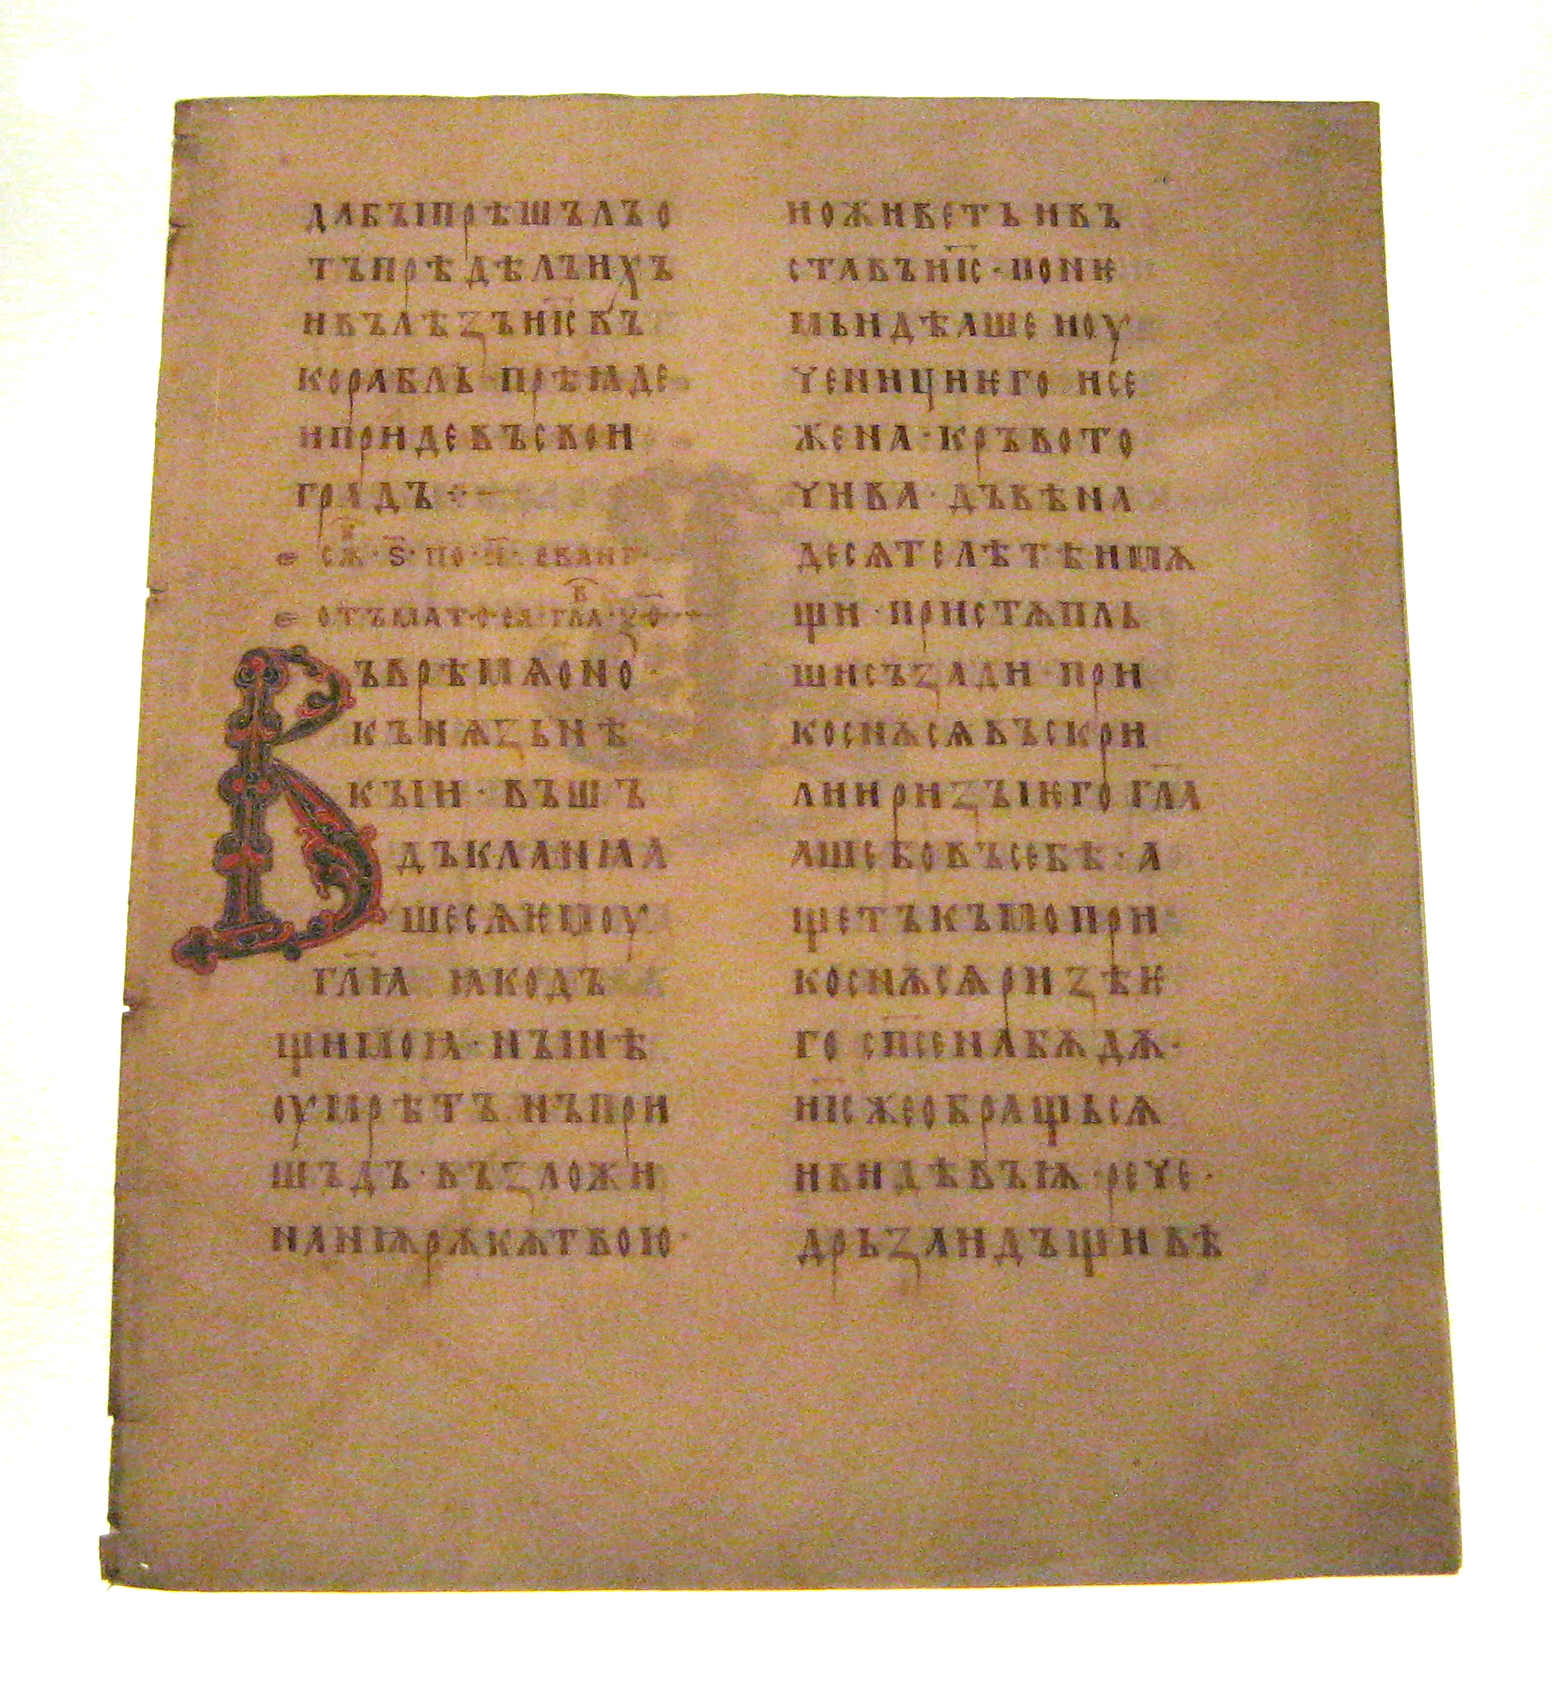 дабꙑпрѣшьлъо
тъпрѣдѣлъихъ
ивълѣзъи҃ісвъ
корабль·прѣꙗде
ипридевъсвои
градъ
сѫ· ѕ҃· по· н҃· еванг
отъмат·ѳеꙗ· гла
Въврѣмѧоно·
кънѧзьнѣ
кꙑи·въшь
дъкланꙗа
шесѧѥмоу
гл҃ꙗ ꙗкодъ
щимоꙗ·нꙑнѣ
оумрѣтъ нъпри
шьдъ·възложи
наниѭрѫкѫтвою·
ноживетьивъ
ставъи҃іс·поиѥ
мьидѣашеиоу
ченициѥго исе
жена·кръвото
чива·дъвѣна
десѧтелѣтѣимѫ
щи·пристѫпль
шисъзади·при
коснѫсѧвъскри
лииризꙑѥго гл҃а
ашебовъсебѣ·а
щетъкъмопри
коснѫсѧризѣѥ
го сп҃сенабѫдѫ·
и҃ісжеобращьсѧ
ивидѣвъѭ·рече·
дрьзаидъщивѣ